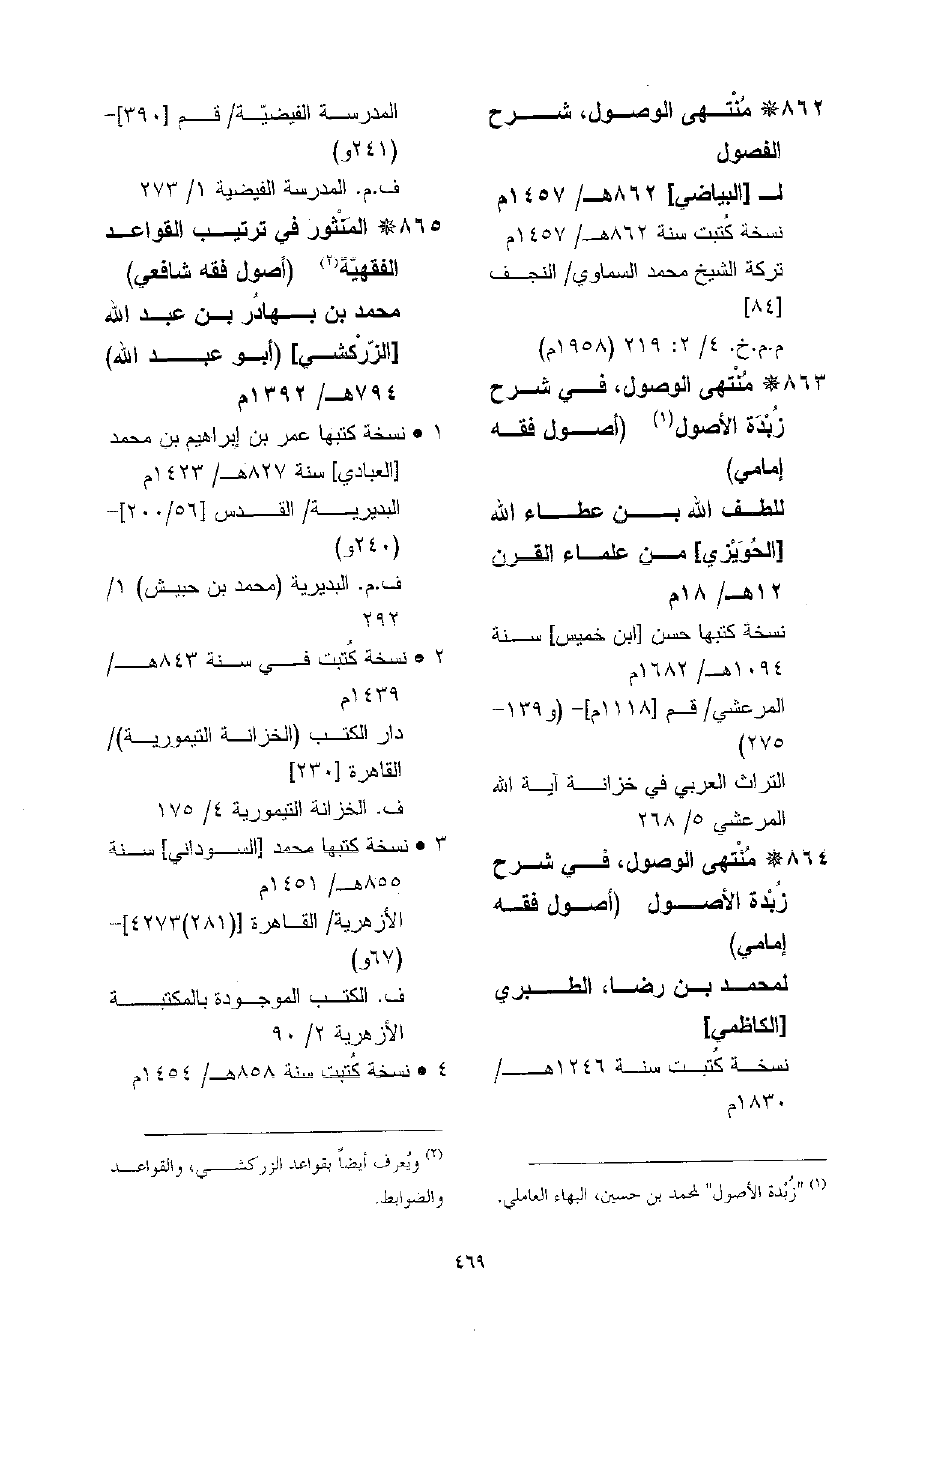 ٨٦٢* مُنْتهى الوصول، شرح
الفصول
لـ [البياضي] ٨٦٢هـ/ ١٤٥٧م
نسخة كُتبت سنة ٨٦٢هـ/ ١٤٥٧م
تركة الشيخ محمد السماوي/ النجف
[٨٤]
م.م.خ. ٤/ ٢: ٢١٩ (١٩٥٨م)
٨٦٣* مُنْتهى الوصول، في شرح
زُبْدَة الأصول(١) (أصول فقه
إمامي)
للطف الله بن عطاء الله
[الحُوَيْزي] من علماء القرن
١٢هـ/ ١٨م
نسخة كتبها حسن [ابن خميس] سنة
١٠٩٤هـ/ ١٦٨٢م
المرعشي/ قم [١١١٨م]- (و١٣٩-
٢٧٥)
التراث العربي في خزانة آية الله
المرعشي ٥/ ٢٦٨
٨٦٤* مُنْتهى الوصول، في شرح
زُبْدة الأصول (أصول فقه
إمامي)
لمحمد بن رضا، الطبري
[الكاظمي]
نسخة كُتبت سنة ١٢٤٦هـ/
١٨٣٠م
(١) "زُبْدة الأصول" لمحمد بن حسين، البهاء العاملي.
المدرسة الفيضيّة/ قم [٣٩٠]-
(٢٤١و)
ف.م. المدرسة الفيضية ١/ ٢٧٣
٨٦٥* المنْثور في ترتيب القواعد
الفقهيّة(٢) (أصول فقه شافعي)
محمد بن بهادُر بن عبد الله
[الزّرْكشي] (أبو عبد الله)
٧٩٤هـ/ ١٣٩٢م
١ • نسخة كتبها عمر بن إبراهيم بن محمد
[العبادي] سنة ٨٢٧هـ/ ١٤٢٣م
البديرية/ القدس [٢٠٠/٥٦]-
(٢٤٠و)
ف.م. البديرية (محمد بن حبيش) ١/
٢٩٢
٢ • نسخة كُتبت في سنة ٨٤٣هـ/
١٤٣٩م
دار الكتب (الخزانة التيمورية)/
القاهرة [٢٣٠]
ف. الخزانة التيمورية ٤/ ١٧٥
٣ • نسخة كتبها محمد [السوداني] سنة
٨٥٥هـ/ ١٤٥١م
الأزهرية/ القاهرة [(٢٨١)٤٢٧٣]-
(٦٧و)
ف. الكتب الموجودة بالمكتبة
الأزهرية ٢/ ٩٠
٤ • نسخة كُتبت سنة ٨٥٨هـ/ ١٤٥٤م
(٢) ويُعرف أيضاً بقواعد الزركشي، والقواعد
والضوابط.
٤٦٩